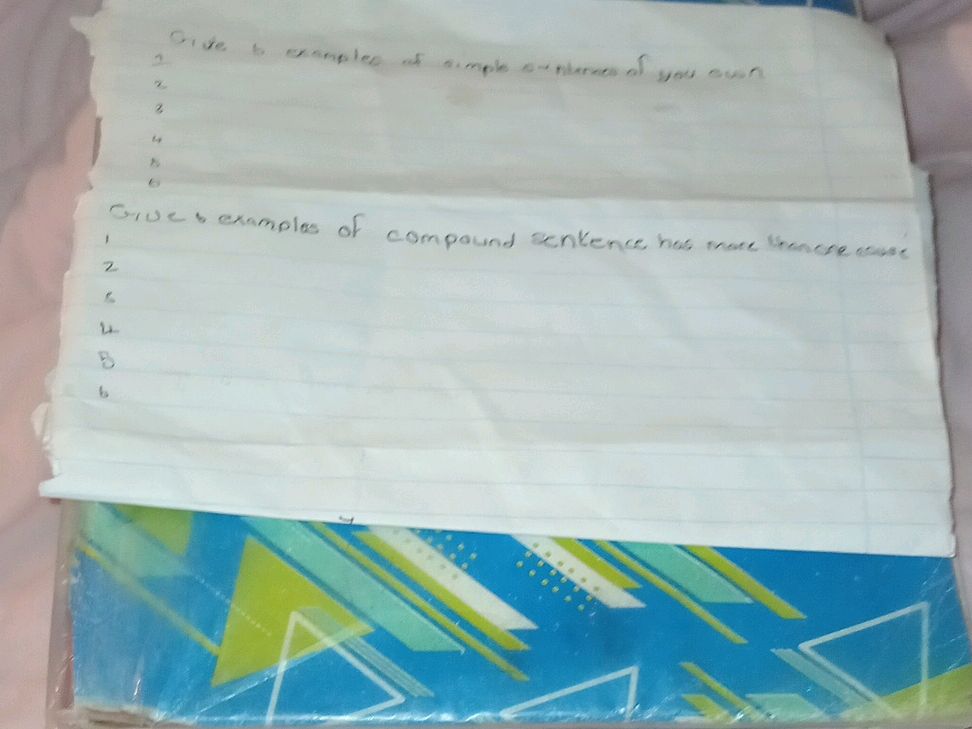 Give 6 examples of simple sentences of you own
1
2
3
4
5
6
Give 6 examples of compound sentence has more than one
1
2
3
4
5
6